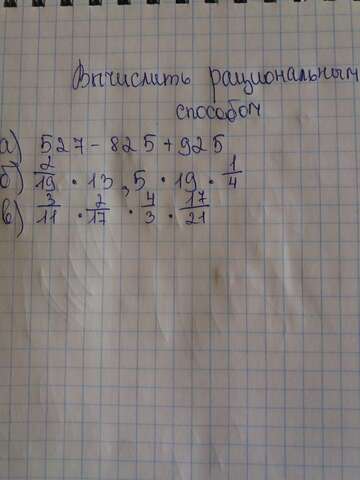 Вычислить рациональным
способом
а) 527 - 825 + 925
б) 2/19 · 13,5 · 19 · 1/4
в) 3/11 · 2/17 · 4/3 · 17/21